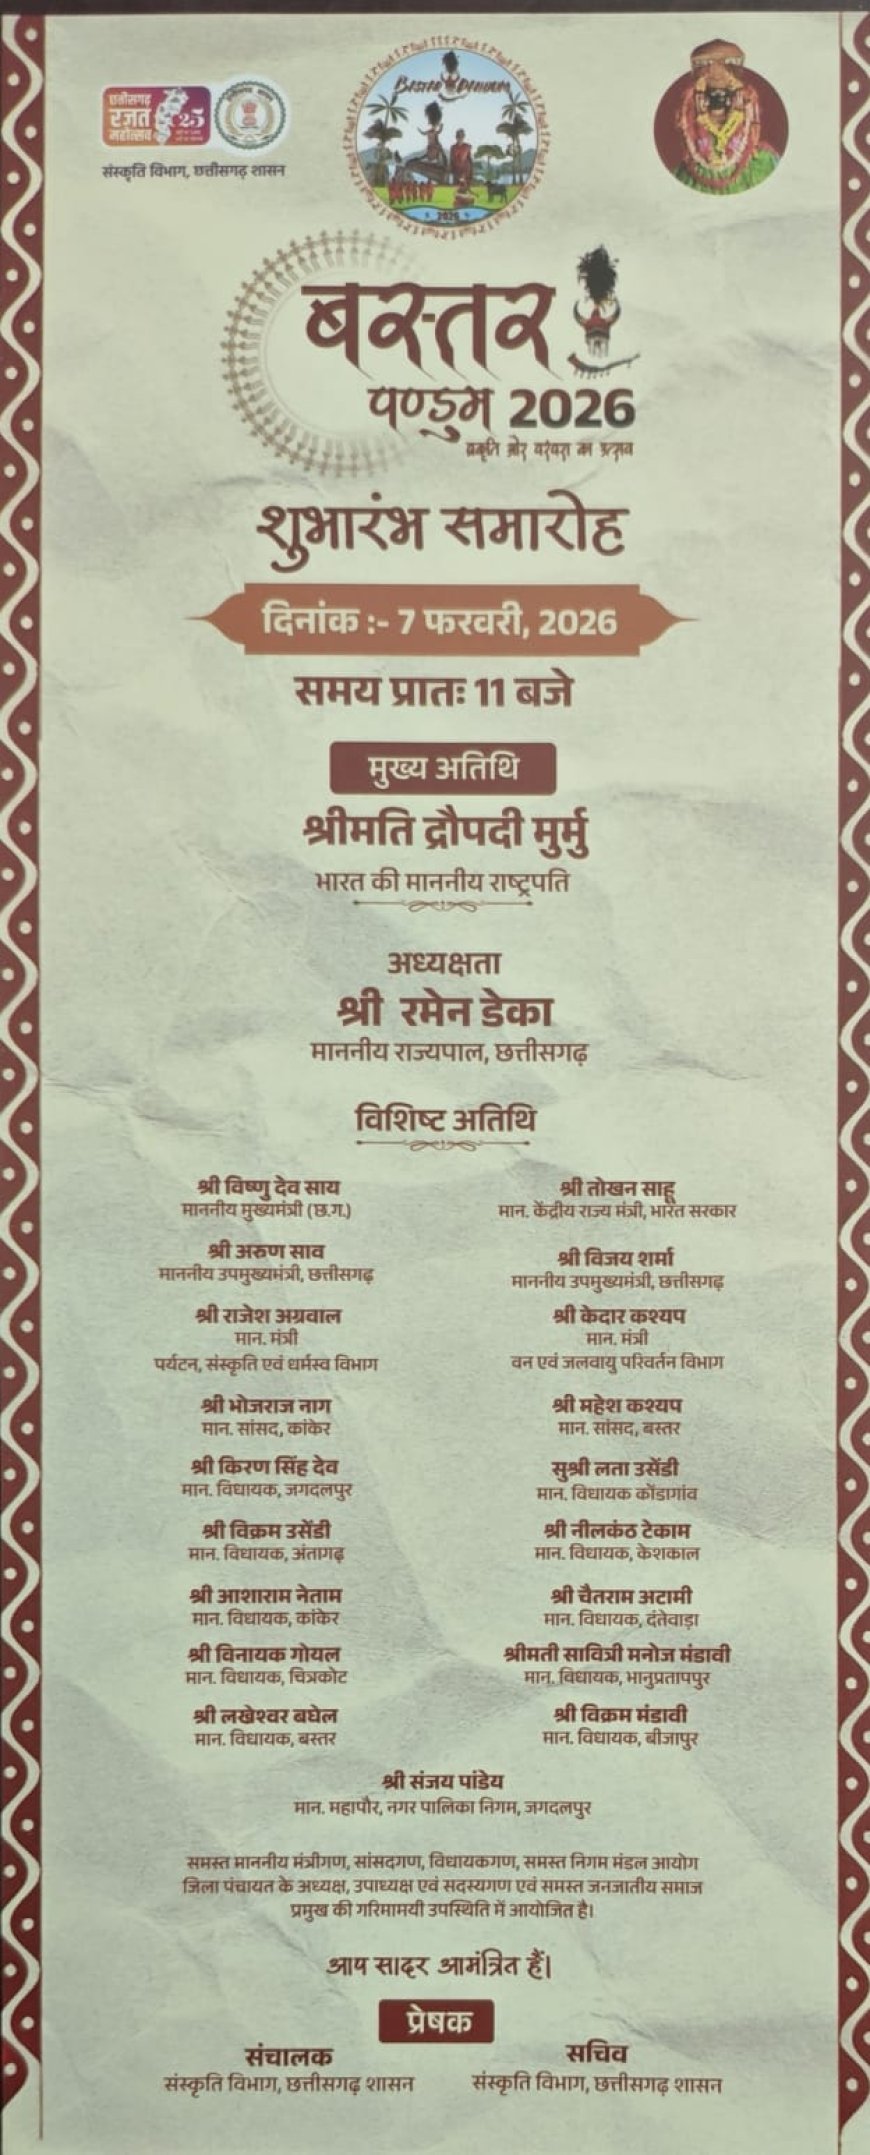 छत्तीसगढ़
रजत
महोत्सव
25
संस्कृति विभाग, छत्तीसगढ़ शासन
BASTAR PANDUM
2026
बस्तर
पण्डुम 2026
प्रकृति और परंपरा का उत्सव
शुभारंभ समारोह
दिनांक :- 7 फरवरी, 2026
समय प्रातः 11 बजे
मुख्य अतिथि
श्रीमति द्रौपदी मुर्मु
भारत की माननीय राष्ट्रपति
अध्यक्षता
श्री रमेन डेका
माननीय राज्यपाल, छत्तीसगढ़
विशिष्ट अतिथि
श्री विष्णु देव साय
माननीय मुख्यमंत्री (छ.ग.)
श्री तोखन साहू
मान. केंद्रीय राज्य मंत्री, भारत सरकार
श्री अरुण साव
माननीय उपमुख्यमंत्री, छत्तीसगढ़
श्री विजय शर्मा
माननीय उपमुख्यमंत्री, छत्तीसगढ़
श्री राजेश अग्रवाल
मान. मंत्री
पर्यटन, संस्कृति एवं धर्मस्व विभाग
श्री केदार कश्यप
मान. मंत्री
वन एवं जलवायु परिवर्तन विभाग
श्री भोजराज नाग
मान. सांसद, कांकेर
श्री महेश कश्यप
मान. सांसद, बस्तर
श्री किरण सिंह देव
मान. विधायक, जगदलपुर
सुश्री लता उसेंडी
मान. विधायक कोंडागांव
श्री विक्रम उसेंडी
मान. विधायक, अंतागढ़
श्री नीलकंठ टेकाम
मान. विधायक, केशकाल
श्री आशाराम नेताम
मान. विधायक, कांकेर
श्री चैतराम अटामी
मान. विधायक, दंतेवाड़ा
श्री विनायक गोयल
मान. विधायक, चित्रकोट
श्रीमती सावित्री मनोज मंडावी
मान. विधायक, भानुप्रतापपुर
श्री लखेश्वर बघेल
मान. विधायक, बस्तर
श्री विक्रम मंडावी
मान. विधायक, बीजापुर
श्री संजय पांडेय
मान. महापौर, नगर पालिका निगम, जगदलपुर
समस्त माननीय मंत्रीगण, सांसदगण, विधायकगण, समस्त निगम मंडल आयोग
जिला पंचायत के अध्यक्ष, उपाध्यक्ष एवं सदस्यगण एवं समस्त जनजातीय समाज
प्रमुख की गरिमामयी उपस्थिति में आयोजित है।
आप सादर आमंत्रित हैं।
प्रेषक
संचालक
संस्कृति विभाग, छत्तीसगढ़ शासन
सचिव
संस्कृति विभाग, छत्तीसगढ़ शासन